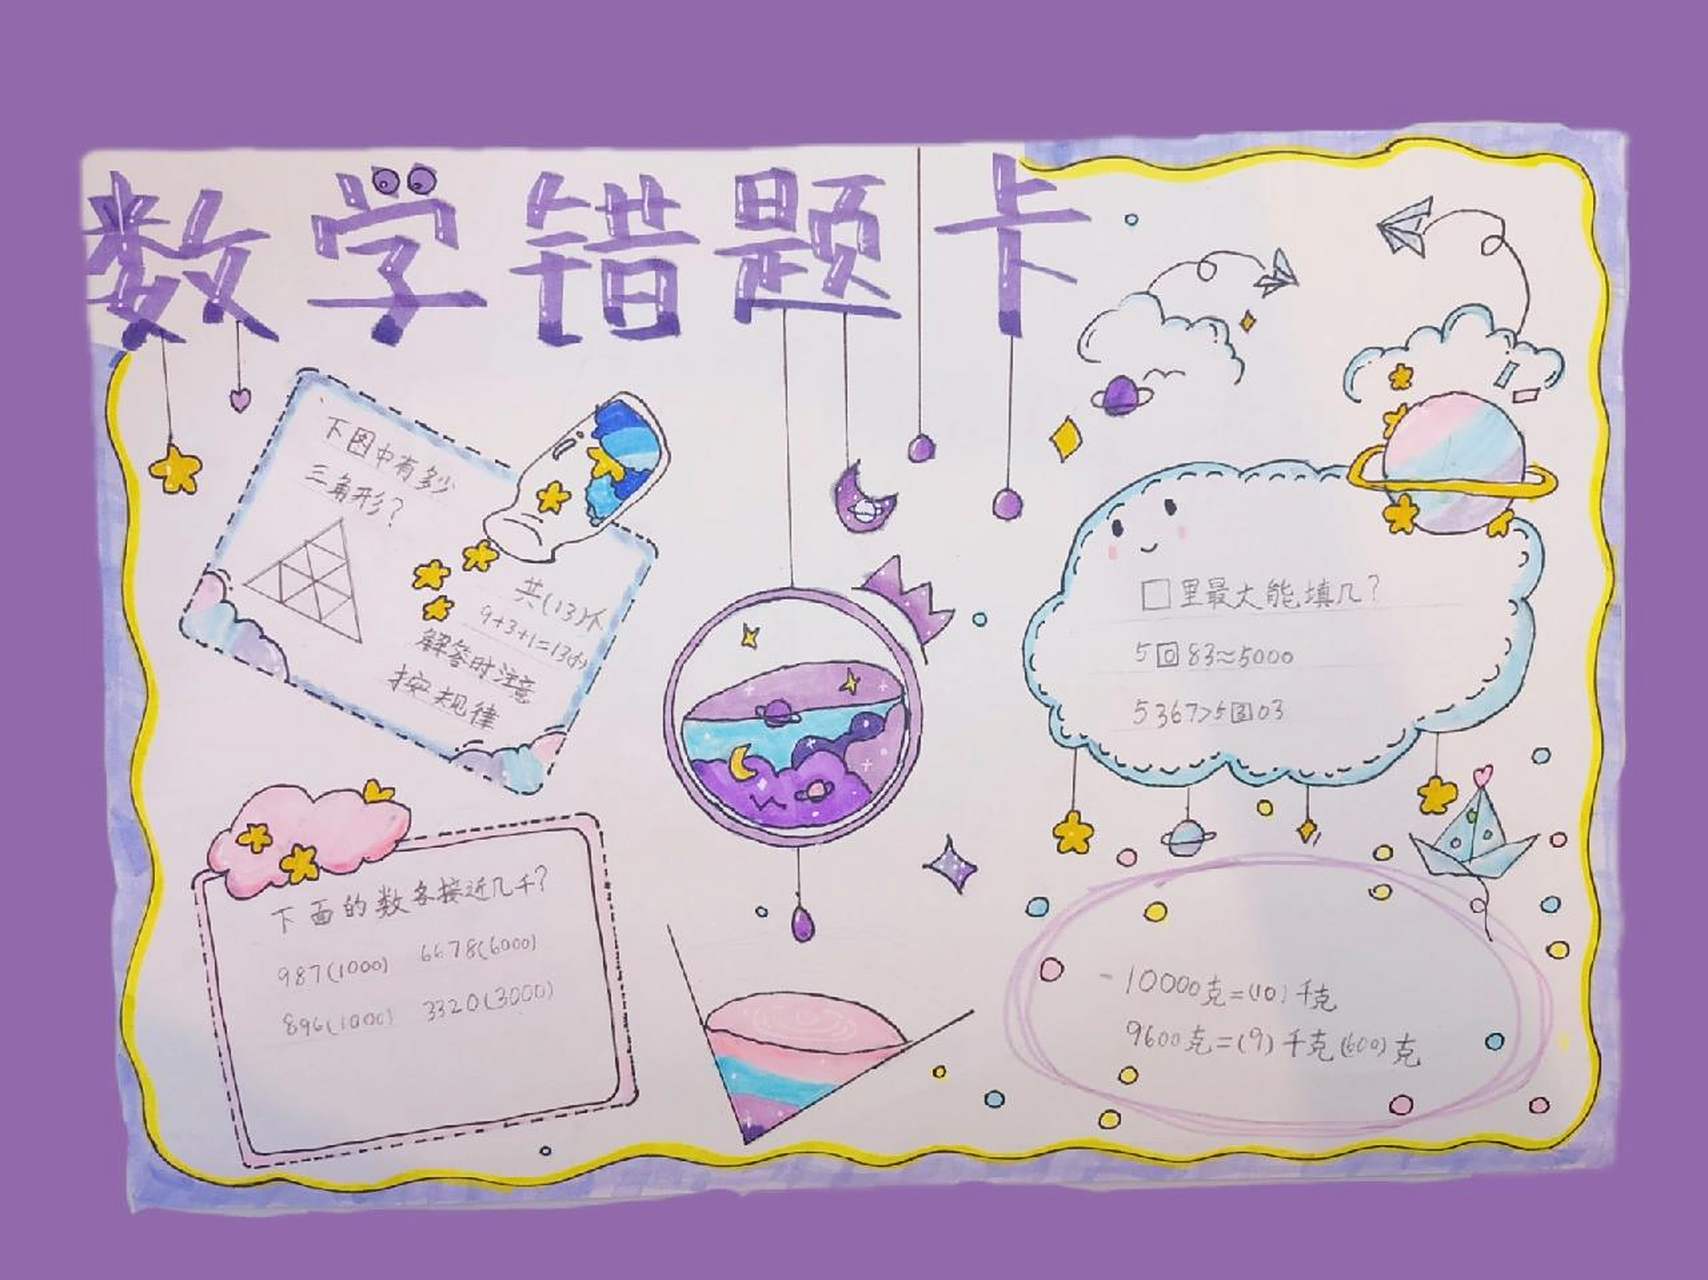 数学错题卡
下图中有多少
三角形?
共(13)个
9+3+1=13(个)
解答时注意
按规律
□里最大能填几?
5[0]83≈5000
5367>5[3]03
下面的数各接近几千?
987(1000) 6678(6000)
896(1000) 3320(3000)
10000克=(10)千克
9600克=(9)千克(600)克